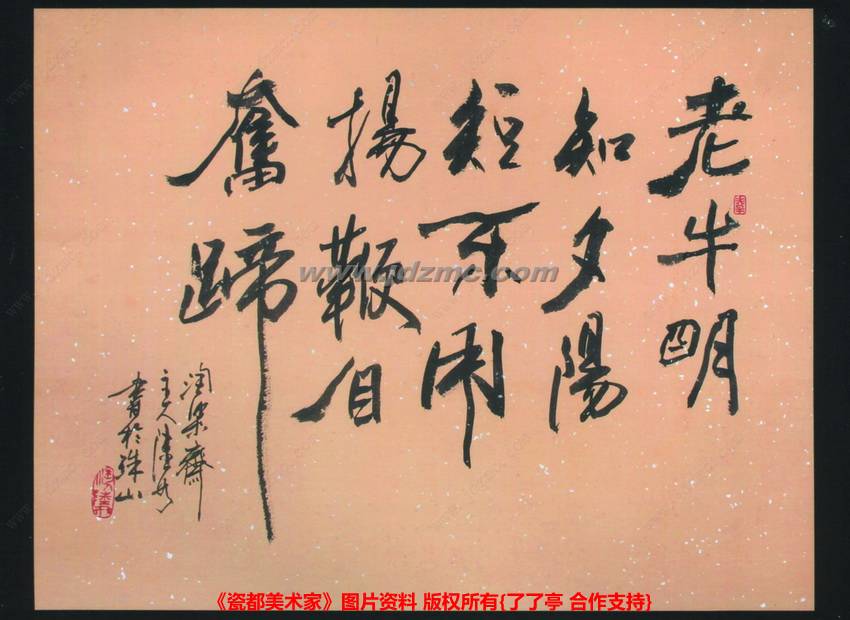 老牛明
知夕陽
短不用
揚鞭自
奮蹄
淘樂齋
主人
書於珠山
www.jdzmc.com
《瓷都美术家》图片资料 版权所有{了了亭 合作支持}